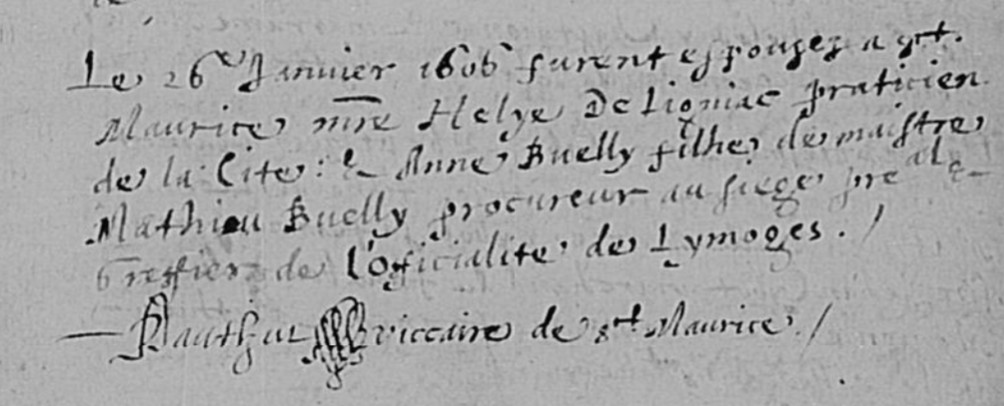 Le 26e Janvier 1606 furent espousez a st.
Maurice mre Helye De Ligniac praticien
de la Cite : & Anne Buelly filhe de maistre
Mathieu Buelly procureur au siege pre al &
Greffier de l'officialite de Lymoges . /
viccaire de st Maurice . /